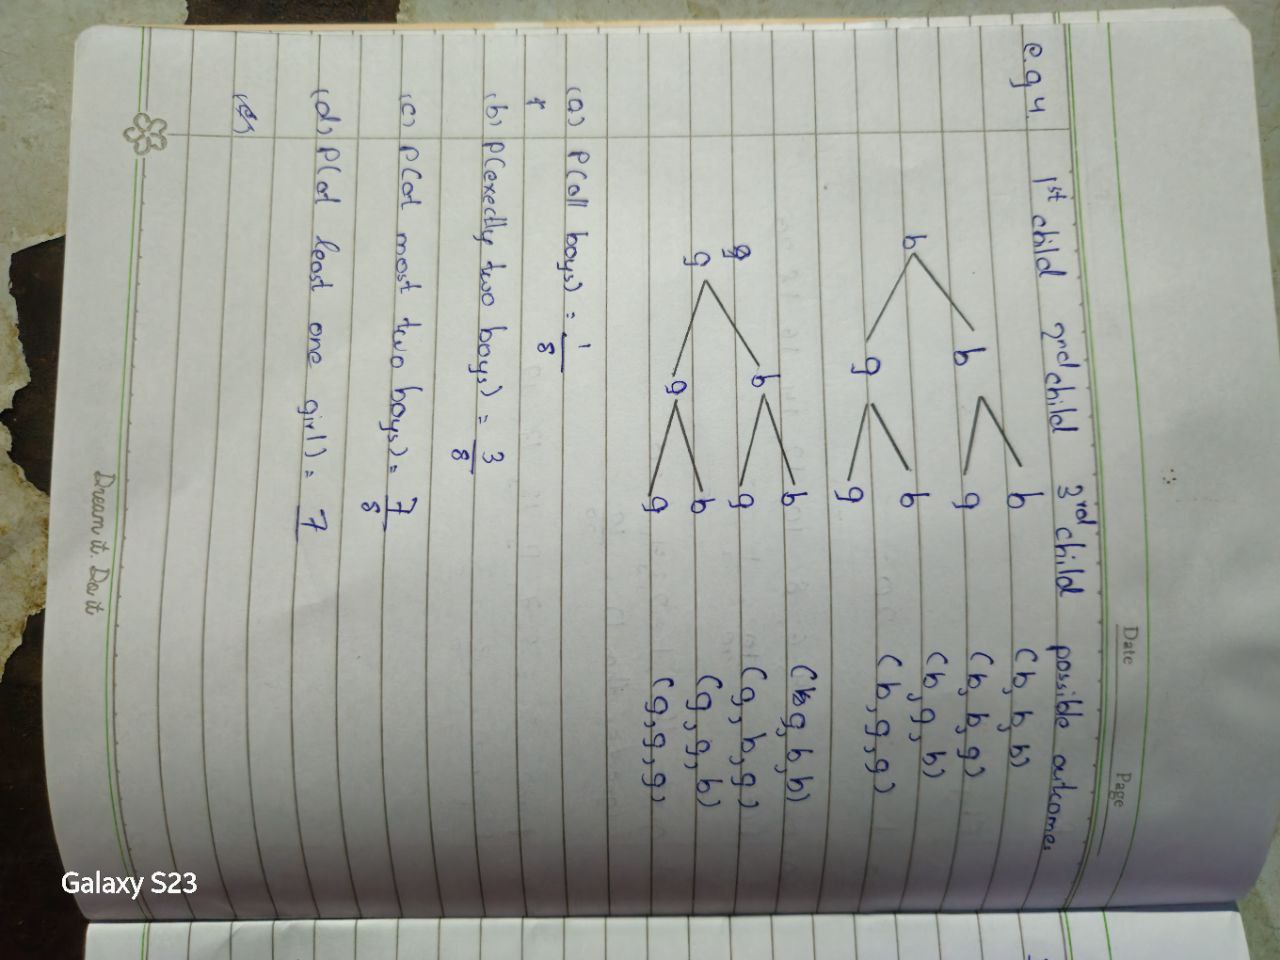 Date Page
e.g 4. 1st child 2nd child 3rd child possible outcomes
b (b, b, b)
b
g (b, b, g)
b
b (b, g, b)
g
g (b, g, g)
b (g, b, b)
b
g
g (g, b, g)
g
b (g, g, b)
g
g (g, g, g)
(a) P(all boys) = 1/8
(b) P(exectly two boys) = 3/8
(c) P(at most two boys) = 7/8
(d) P(at least one girl) = 7
Dream it. Do it
Galaxy S23